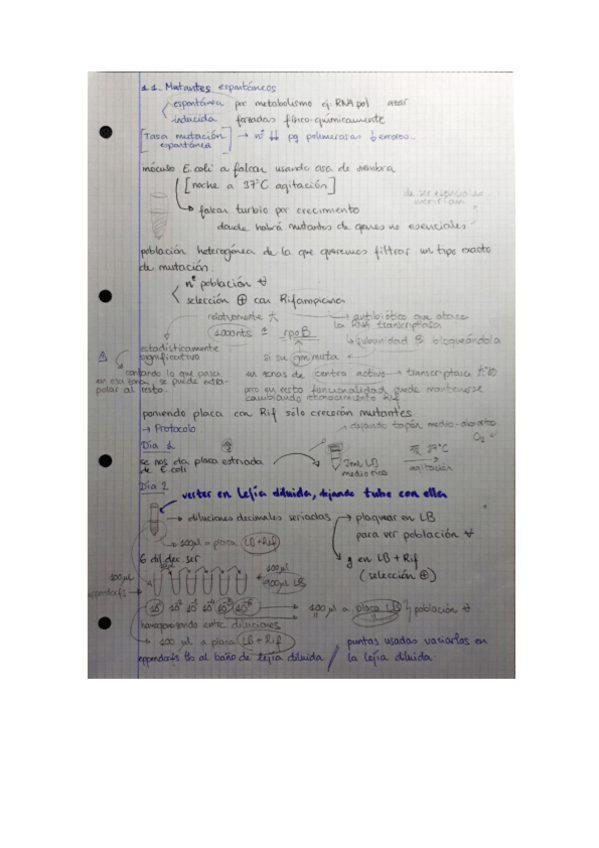 1.1. Mutantes espontáneos
espontánea por metabolismo ej. RNA pol azar
inducida forzadas físico-químicamente
[Tasa mutación espontánea] → nº ↓↓ pq polimerasas ↓ errores.
inóculo E. coli a falcon usando asa de siembra
[noche a 37°C agitación]
↳ falcon turbio por crecimiento
donde habrá mutantes de genes no esenciales
de ser esenciales morirían
población heterogénea de la que queremos filtrar un tipo exacto
de mutación.
nº población
selección ⊕ con Rifampicina
relativamente
→ antibiótico que ataca
la RNA transcriptasa
1000nts rpoB
↳ subunidad β bloqueándola
estadísticamente
significativo
si su gen muta
contando lo que pasa
en esa zona, se puede extra-
polar al resto.
en zonas de centro activo → transcriptasa
pero en resto funcionalidad puede mantenerse
cambiando reconocimiento Rif
poniendo placa con Rif sólo crecerán mutantes
→ Protocolo
→ dejando tapón medio-abierto
O2
Día 1
se nos da placa estriada
de E. coli
2mL LB
medio rico
37°C
agitación
Día 2
verter en lejía diluida, dejando tubo con ella
→ diluciones decimales seriadas → plaquear en LB
para ver población
→ 100µl a placa LB+Rif
y en LB + Rif
(selección ⊕)
6 dil. dec. ser
100µl
100µL
900µL LB
eppendorf
10⁻¹ 10⁻² 10⁻³ 10⁻⁴ 10⁻⁵ 10⁻⁶
→ 100 µl a placa LB población
homogeneizando entre diluciones
→ 100 µl a placa LB + Rif
eppendorfs tb al baño de lejía diluida /
puntas usadas vaciarlas en
la lejía diluida.